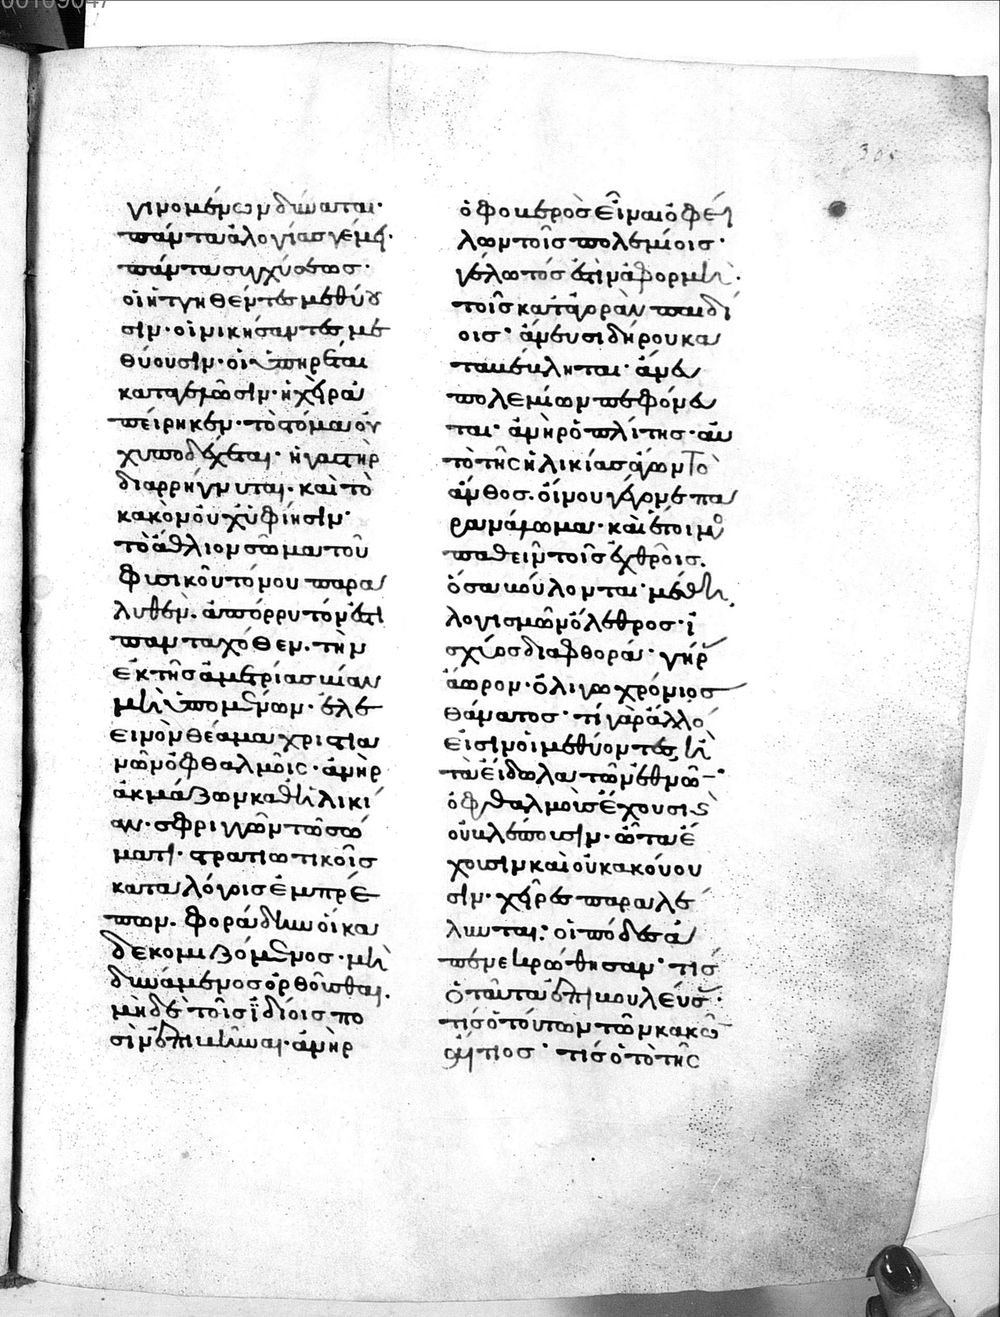 00109047
305
γινομένων δύναται·
πάντα ἀλογίας γέμει·
πάντα συγχύσεως·
οἱ ἡττηθέντες μεθύου
σιν· οἱ νικήσαντες με
θύουσιν· οἱ ὑπηρέται
καταγελῶσιν· ἡ χεὶρ ἀ
πείρηκεν· τὸ στόμα οὐ
χ ὑποδέχεται· ἡ γαστὴρ
διαρρήγνυται· καὶ τὸ
κακὸν οὐχ ὑφίησιν·
τὸ ἄθλιον σῶμα τοῦ
φυσικοῦ τόνου παρα
λυθὲν· ἀπόρρυτόν ἐστι
πανταχόθεν· τὴν
ἐκ τῆς ἀμετρίας βίαν
μὴ ὑπομένων· ἐλε
εινὸν θέαμα χριστια
νῶν ὀφθαλμοῖς· ἀνὴρ
ἀκμάζων καθ' ἡλικί
αν· σφριγῶν τῷ σώ
ματι· στρατιωτικοῖς
καταλόγοις ἐμπρέ
πων· φοράδην οἴκα
δε κομιζόμενος· μὴ
δυνάμενος ὀρθοῦσθαι·
μηδὲ τοῖς ἰδίοις πο
σὶν ἐπιβῆναι· ἀνὴρ
ὁ φοβερὸς εἶναι ὀφεί
λων τοῖς πολεμίοις·
γέλωτός ἐστιν ἀφορμὴ·
τοῖς κατ' ἀγορὰν παιδί
οις· ἄνευ σιδήρου κα
ταβέβληται· ἄνευ
πολεμίων πεφόνευ
ται· ἀνὴρ ὁπλίτης· αὐ
τὸ τῆς ἡλικίας ἄγων τὸ
ἄνθος· οἴνου γέγονε πα
ρανάλωμα· καὶ ἕτοιμος
παθεῖν τοῖς ἐχθροῖς·
ὅσα βούλονται· μέθη·
λογισμῶν ὄλεθρος· ἰ
σχύος διαφθορά· γῆρας
ἄωρον· ὀλιγοχρόνιος
θάνατος· τί γὰρ ἄλλο
εἰσὶν οἱ μεθύοντες, ἢ
τὰ εἴδωλα τῶν ἐθνῶν·
ὀφθαλμοὺς ἔχουσι καὶ
οὐ βλέπουσιν· ὦτα ἔ
χουσιν καὶ οὐκ ἀκούου
σιν· χεῖρες παραλέ
λυνται· οἱ πόδες ἀ
πενεκρώθησαν· τίς
ὁ ταῦτα ἐπιβουλεύσας·
τίς ὁ τούτων τῶν κακῶν
αἴτιος· τίς ὁ τὸ τῆς